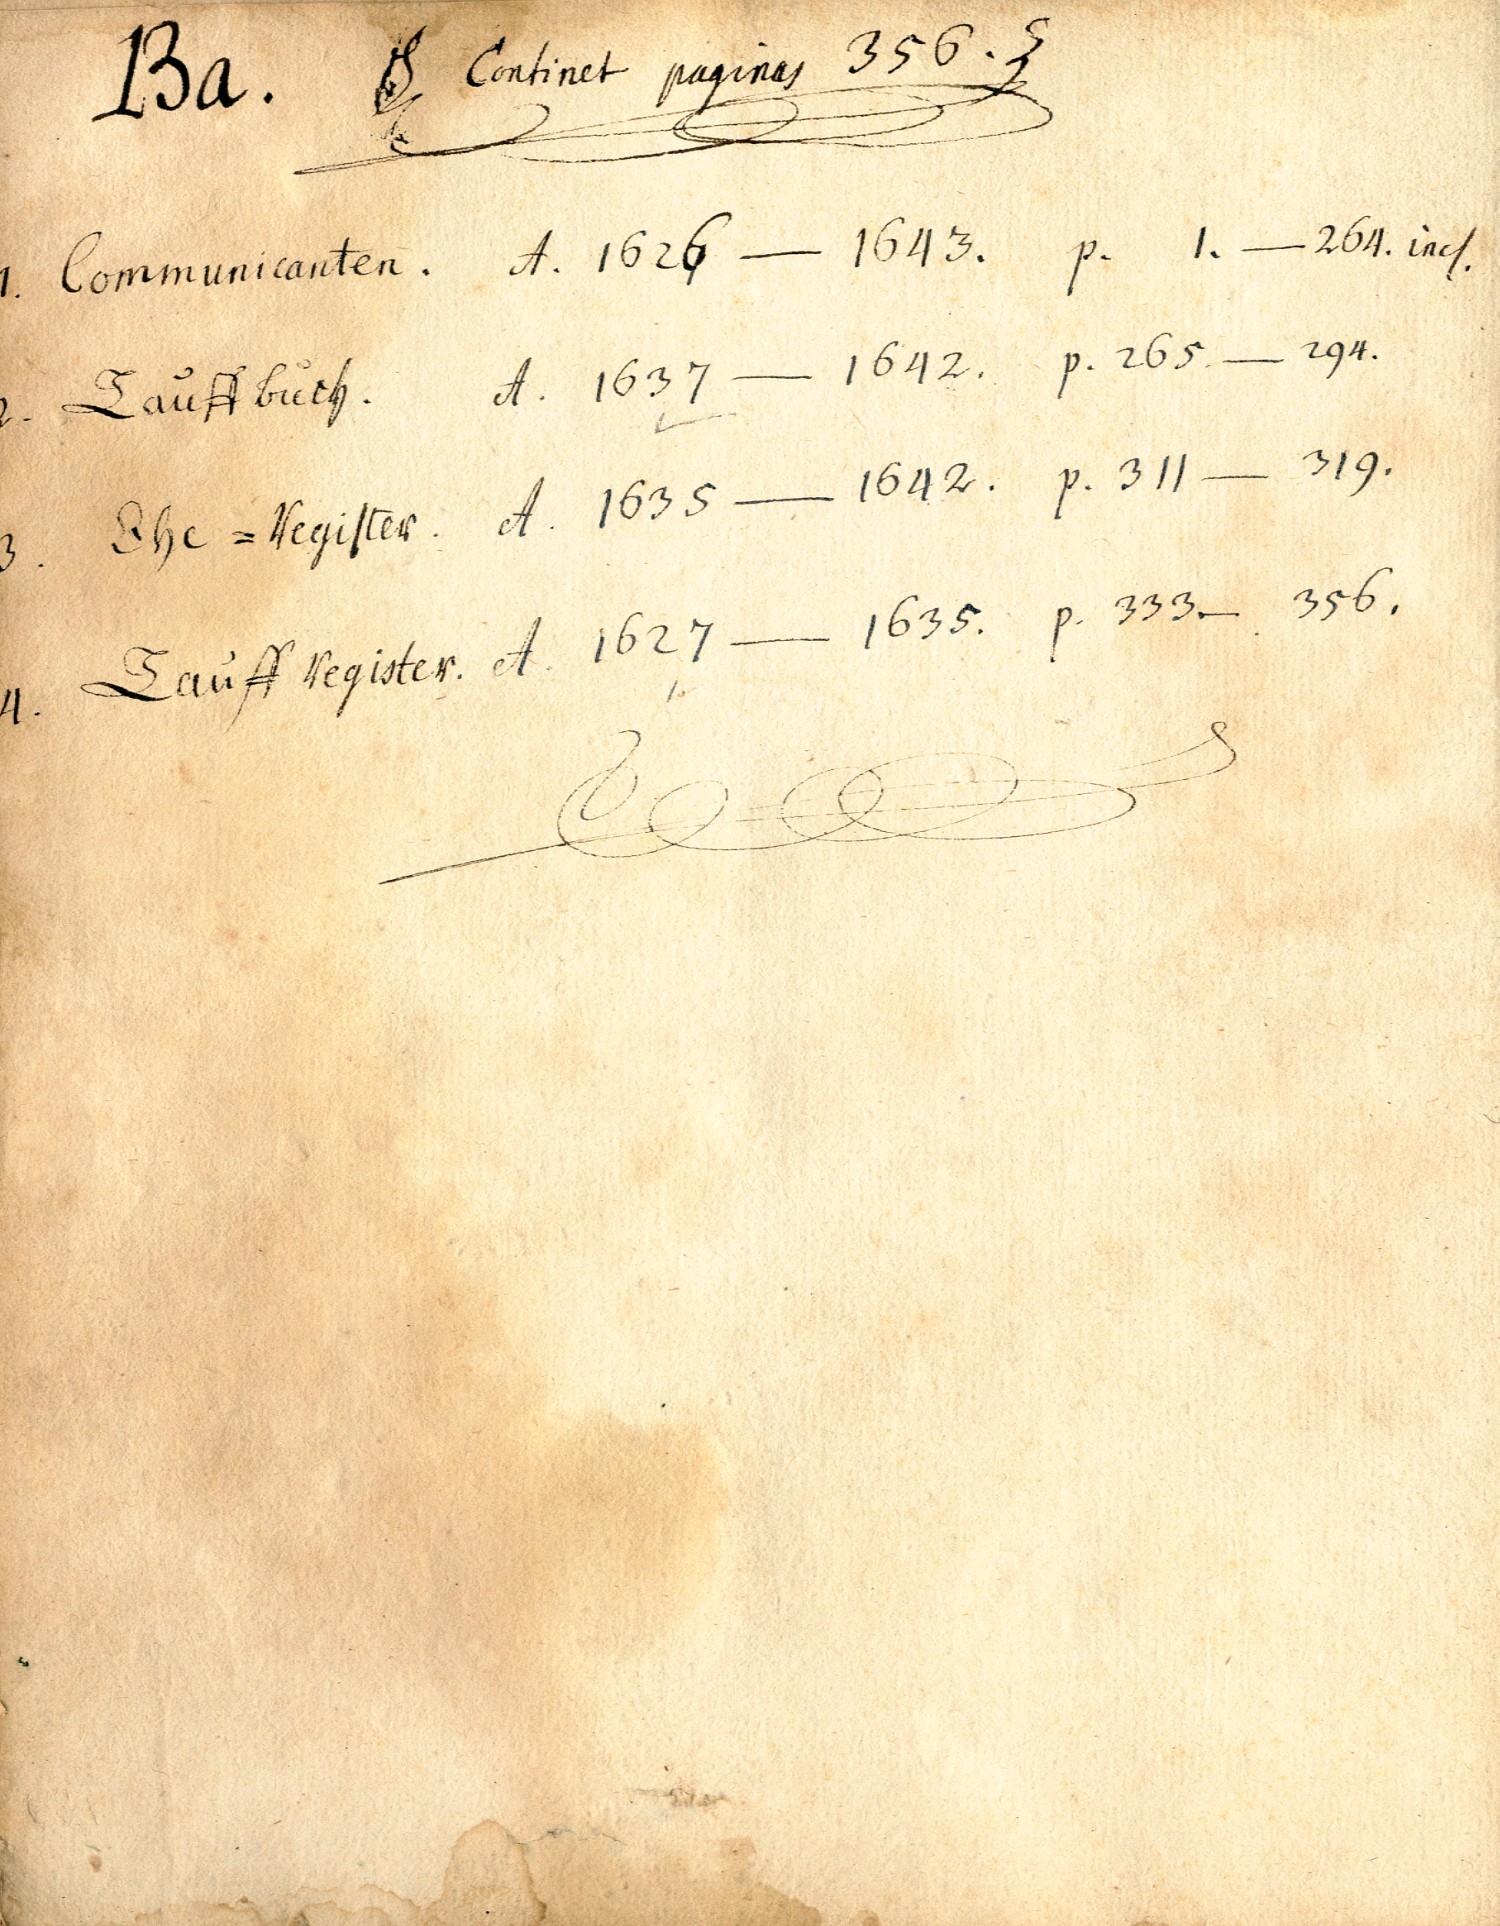 Ba. Continet paginas 356.
1. Communicanten. A. 1626 — 1643. p. 1. — 264. incl.
2. Tauffbuch. A. 1637 — 1642. p. 265. — 294.
3. Ehe = Register. A. 1635 — 1642. p. 311 — 319.
4. Tauff Register. A. 1627 — 1635. p. 333. — 356.